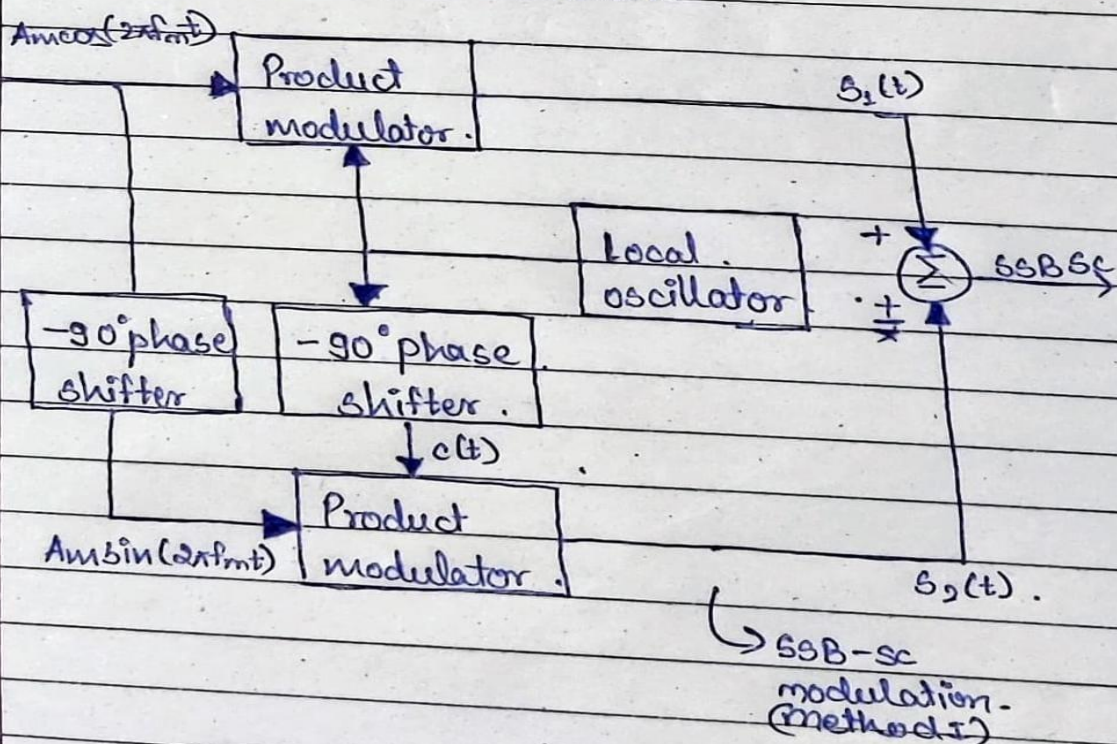 Amcos(2πfmt)
Product
modulator.
S₁(t)
Local
oscillator
+
Σ
SSBSC
±
-90° phase
shifter
-90° phase
shifter.
c(t)
Product
modulator.
Amsin(2πfmt)
S₂(t).
SSB-SC
modulation-
(Method I)